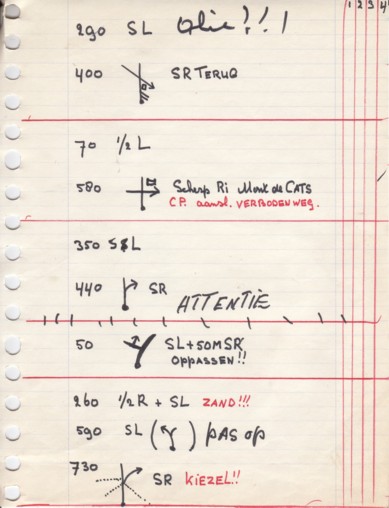 1 2 3 4
290 SL Olie!!!
400 SR TERUG
70 1/2 L
580 Scherp Ri Mont de CATS
CP. aansl. VERBODEN WEG.
350 S&L
440 SR
ATTENTIE
50 SL+50M SR
OPPASSEN!!
260 1/2R + SL ZAND!!!
590 SL ( ) PAS OP
730 SR KIEZEL!!